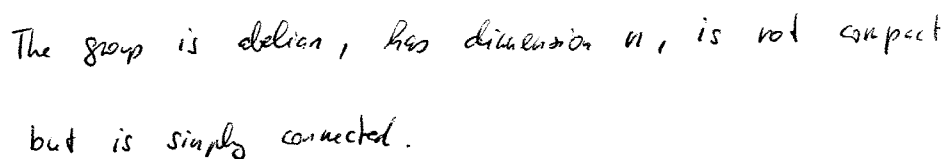 The group is abelian, has dimension n, is not compact
but is simply connected.